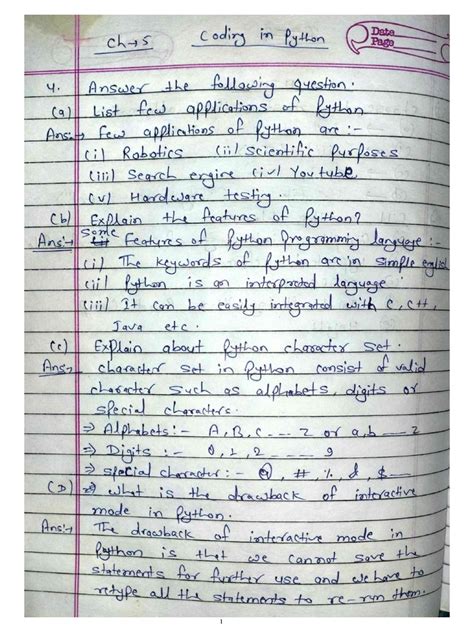 Ch→5 Coding in Python
Data
Page
4. Answer the following question.
(a) List few applications of Python
Ans:→ Few applications of Python are :-
(i) Robotics (ii) Scientific Purposes
(iii) Search engine (iv) Youtube
(v) Hardware testing.
(b) Explain the features of Python?
Ans:- Some Features of Python Programming language :-
(i) The keywords of Python are in simple english
(ii) Python is an interpreted language
(iii) It can be easily integrated with C, C++,
Java etc.
(c) Explain about Python character set.
Ans:- character set in Python consist of valid
character such as alphabets, digits or
special characters.
⇒ Alphabets :- A, B, C --- Z or a, b --- z
⇒ Digits :- 0, 1, 2 ---- 9
⇒ special character :- @, #, %, &, $---
(D) what is the drawback of interactive
mode in Python.
Ans:→ The drawback of interactive mode in
Python is that we cannot save the
statements for further use and we have to
retype all the statements to re-run them.
1